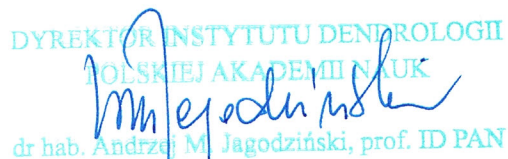 DYREKTOR INSTYTUTU DENDROLOGII
POLSKIEJ AKADEMII NAUK
dr hab. Andrzej M. Jagodziński, prof. ID PAN